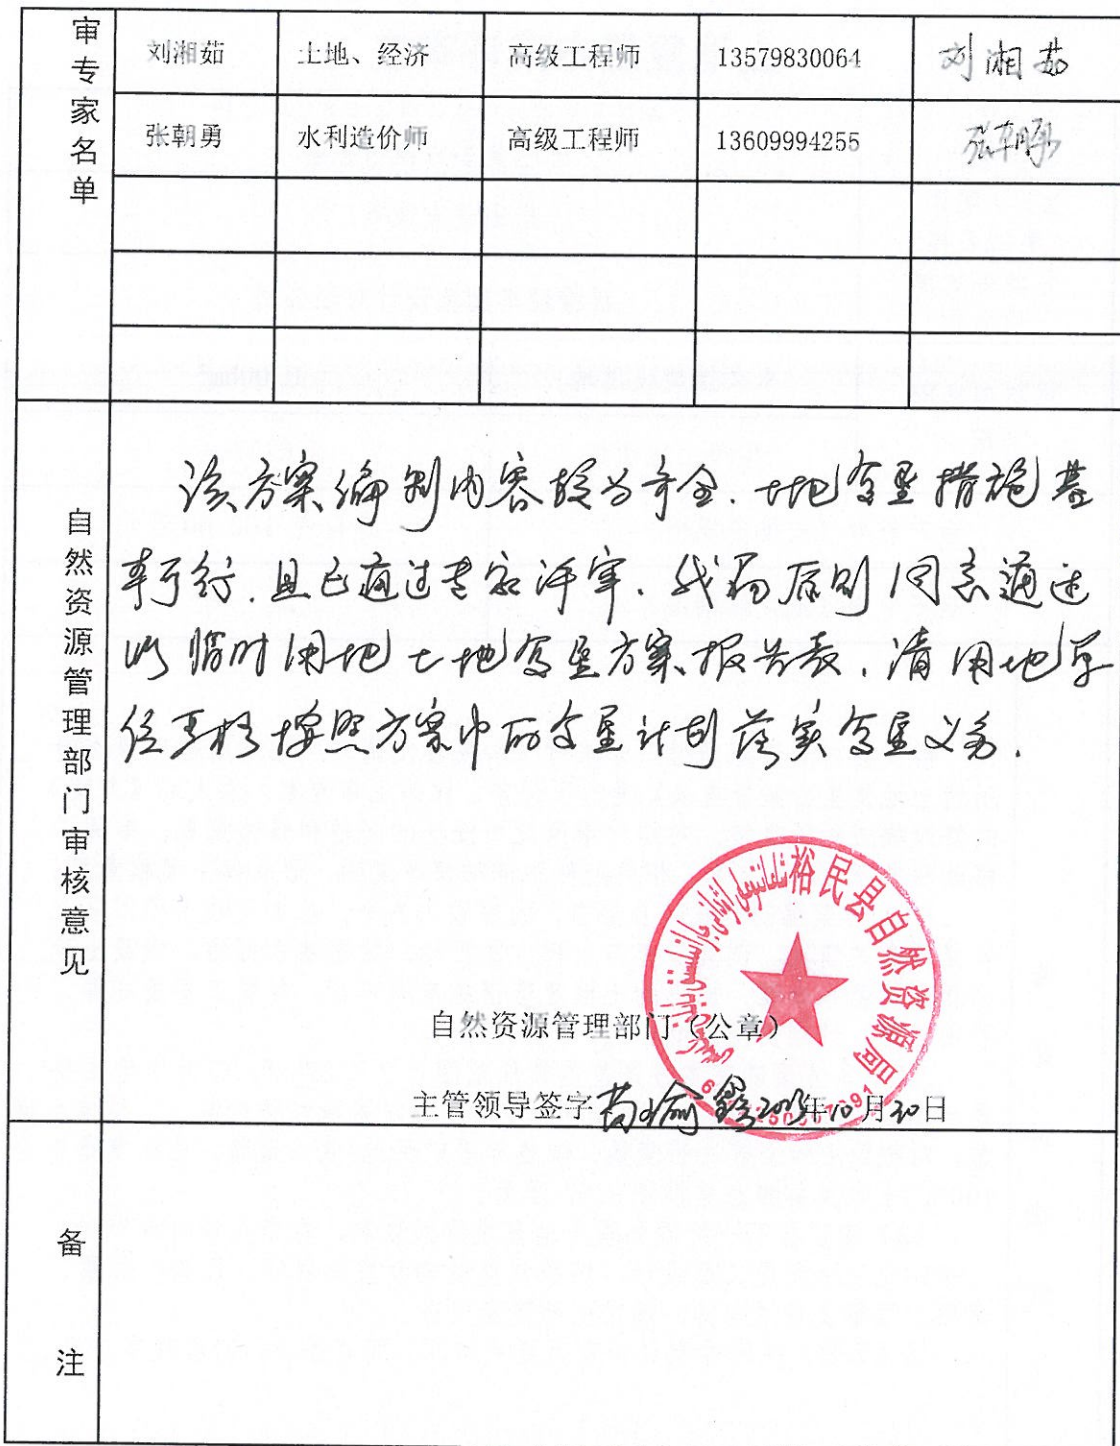 审专家名单
刘湘茹 土地、经济 高级工程师 13579830064 刘湘茹
张朝勇 水利造价师 高级工程师 13609994255 张朝勇
自然资源管理部门审核意见
该方案编制内容较为齐全.土地复垦措施基
本可行.且已通过专家评审.我局原则同意通过
临时用地土地复垦方案报告表.请用地单
位严格按照方案中的复垦计划落实复垦义务.
裕民县自然资源局
自然资源管理部门（公章）
主管领导签字 年10月20日
备注